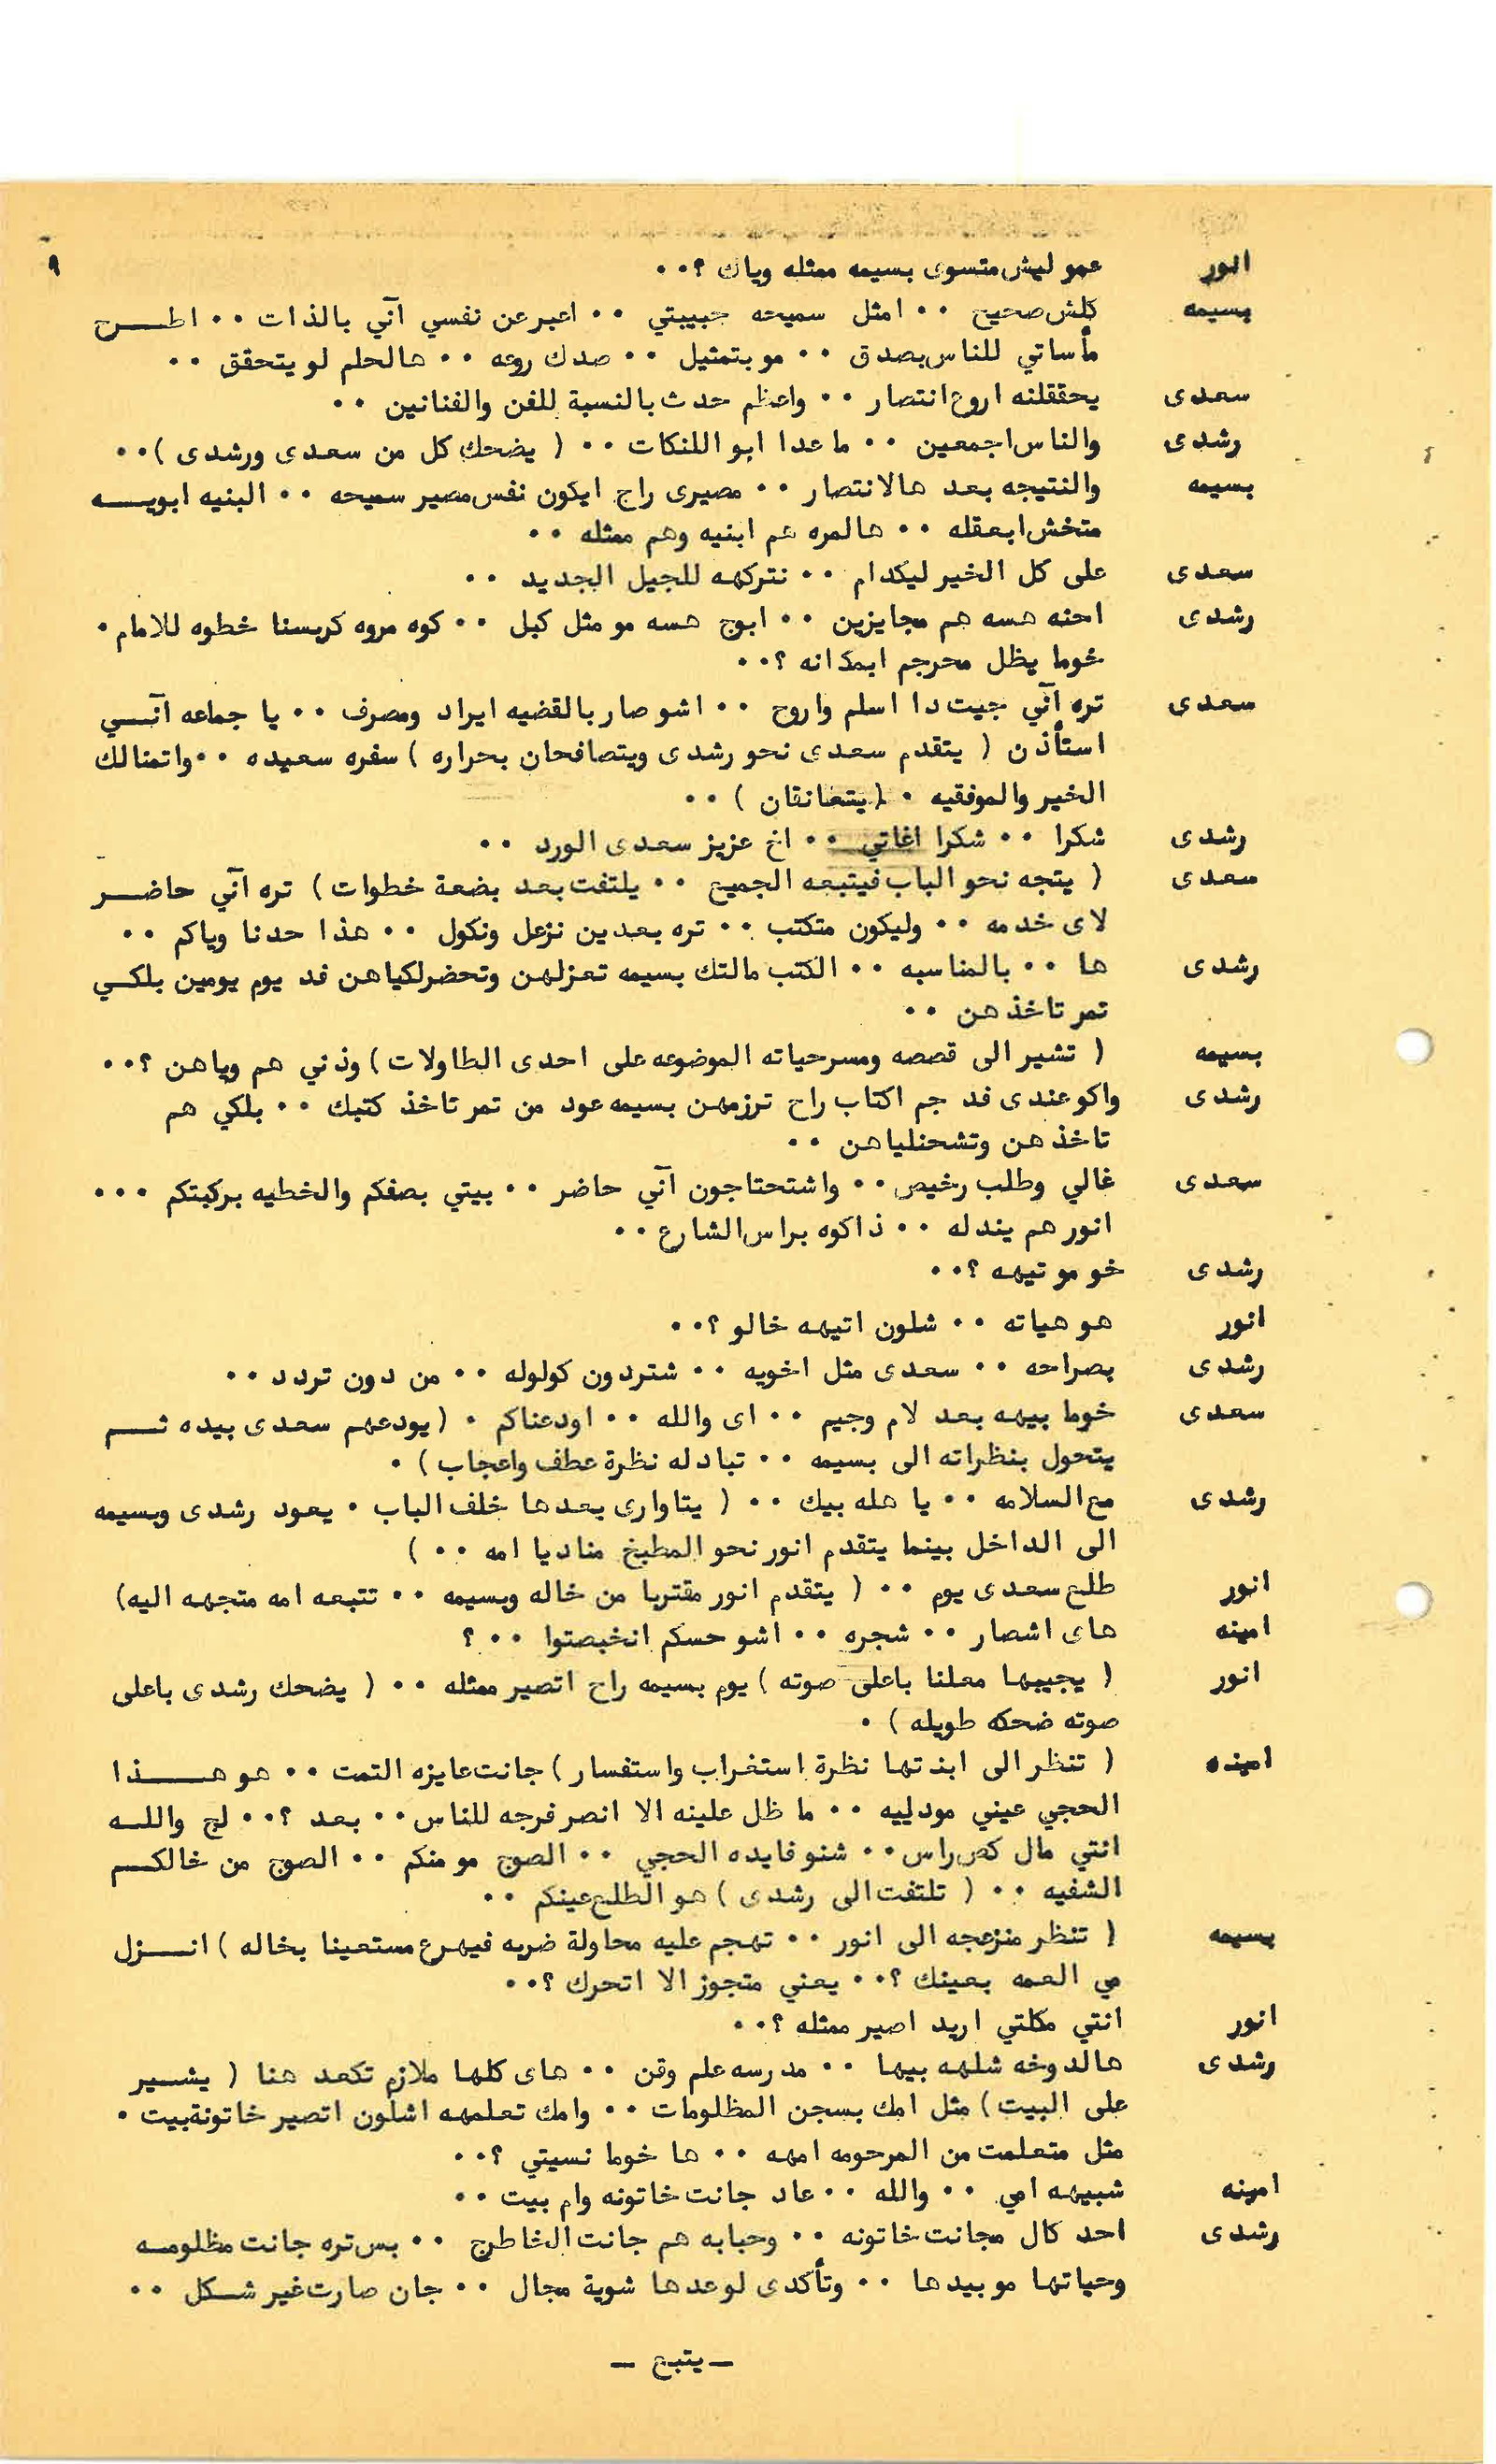 ٩
انور عمو ليش متسوى بسيمه ممثله وياك ؟٠٠
بسيمه كلش صحيح ٠٠ امثل سميحه حبيبتي ٠٠ اعبر عن نفسي آني بالذات ٠٠ اطــرح
مأساتي للناس بصدق ٠٠ مو بتمثيل ٠٠ صدك روعه ٠٠ هالحلم لو يتحقق ٠٠
سعدى يحققلنه اروع انتصار ٠٠ واعظم حدث بالنسبة للفن والفنانين ٠٠
رشدى والناس اجمعين ٠٠ ما عدا ابو اللنكات ٠٠ ( يضحك كل من سعدى ورشدى )٠٠
بسيمه والنتيجه بعد هالانتصار ٠٠ مصيرى راح ايكون نفس مصير سميحه ٠٠ البنيه ابويــه
متخش ابعقله ٠٠ هالمره هم ابنيه وهم ممثله ٠٠
سعدى على كل الخير ليكدام ٠٠ نتركهه للجيل الجديد ٠٠
رشدى احنه هسه هم مجايزين ٠٠ ابوج هسه مو مثل كبل ٠٠ كوه مروه كربسنا خطوه للامام ٠
خوما يظل محرجم ابمكانه ؟٠٠
سعدى تره آني جيت دا اسلم واروح ٠٠ اشو صار بالقضيه ايراد ومصرف ٠٠ يا جماعه آنــي
استأذن ( يتقدم سعدى نحو رشدى ويتصافحان بحراره ) سفره سعيده ٠٠ واتمنالك
الخير والموفقيه ٠ ( يتعانقان ) ٠٠
رشدى شكرا ٠٠ شكرا اغاتي ٠٠ اخ عزيز سعدى الورد ٠٠
سعدى ( يتجه نحو الباب فيتبعه الجميع ٠٠ يلتفت بعد بضعة خطوات ) تره آني حاضــر
لاى خدمه ٠٠ وليكون متكتب ٠٠ تره بعدين نزعل ونكول ٠٠ هذا حدنا وياكم ٠٠
رشدى ها ٠٠ بالمناسبه ٠٠ الكتب مالتك بسيمه تعزلهن وتحضرلكياهن فد يوم يومين بلكــي
تمر تاخذهن ٠٠
بسيمه ( تشير الى قصصه ومسرحياته الموضوعه على احدى الطاولات ) وذني هم وياهن ؟٠٠
رشدى واكو عندى فد جم اكتاب راح ترزمهن بسيمه عود من تمر تاخذ كتبك ٠٠ بلكي هم
تاخذهن وتشحنلياهن ٠٠
سعدى غالي وطلب رخيص ٠٠ واشتحتاجون آني حاضر ٠٠ بيتي بصفكم والخطيه بركبتكم ٠٠٠
انور هم يندله ٠٠ ذاكوه براس الشارع ٠٠
رشدى خو مو تيهه ؟٠٠
انور هو هياته ٠٠ شلون اتيهه خالو ؟٠٠
رشدى بصراحه ٠٠ سعدى مثل اخويه ٠٠ شتردون كولوله ٠٠ من دون تردد ٠٠
سعدى خوما بيهه بعد لام وجيم ٠٠ اى والله ٠٠ اودعناكم ٠ ( يودعهم سعدى بيده ثــم
يتحول بنظراته الى بسيمه ٠٠ تبادله نظرة عطف واعجاب ) ٠
رشدى مع السلامه ٠٠ يا هله بيك ٠٠ ( يتاوارى بعدها خلف الباب ٠ يعود رشدى وبسيمه
الى الداخل بينما يتقدم انور نحو المطبخ مناديا امه ٠٠ )
انور طلع سعدى يوم ٠٠ ( يتقدم انور مقتربا من خاله وبسيمه ٠٠ تتبعه امه متجهه اليه)
امينه هاى اشصار ٠٠ شجره ٠٠ اشو حسكم انخبصتوا ٠٠ ؟
انور ( يجيبها معلنا باعلى صوته ) يوم بسيمه راح اتصير ممثله ٠٠ ( يضحك رشدى باعلى
صوته ضحكه طويله ) ٠
امينه ( تنظر الى ابنتها نظرة استغراب واستفسار ) جانت عايزه التمت ٠٠ هو هــــذا
الحجي عيني مودليه ٠٠ ما ظل علينه الا انصر فرجه للناس ٠٠ بعد ؟٠٠ لج واللــه
انتي مال كص راس ٠٠ شنو فايده الحجي ٠٠ الصوج مو منكم ٠٠ الصوج من خالكــم
الشفيه ٠٠ ( تلتفت الى رشدى ) هو الطلع عينكم ٠٠
بسيمه ( تنظر منزعجه الى انور ٠٠ تهجم عليه محاولة ضربه فيهرع مستعينا بخاله ) انــزل
مي العمه بعينك ؟٠٠ يعني متجوز الا اتحرك ؟٠٠
انور انتي مكلتي اريد اصير ممثله ؟٠٠
رشدى هالدوخه شلهه بيها ٠٠ مدرسه علم وفن ٠٠ هاى كلها ملازم تكعد هنا ( يشــير
على البيت ) مثل امك بسجن المظلومات ٠٠ وامك تعلمهه اشلون اتصير خاتونة بيت ٠
مثل متعلمت من المرحومه امهه ٠٠ ها خوما نسيتي ؟٠٠
امينه شبيهه امي ٠٠ والله ٠٠ عاد جانت خاتونه وام بيت ٠٠
رشدى احد كال مجانت خاتونه ٠٠ وحبابه هم جانت الخاطرج ٠٠ بس تره جانت مظلومــه
وحياتها مو بيدها ٠٠ وتأكدى لو عدها شوية مجال ٠٠ جان صارت غير شــكل ٠٠
— يتبع —